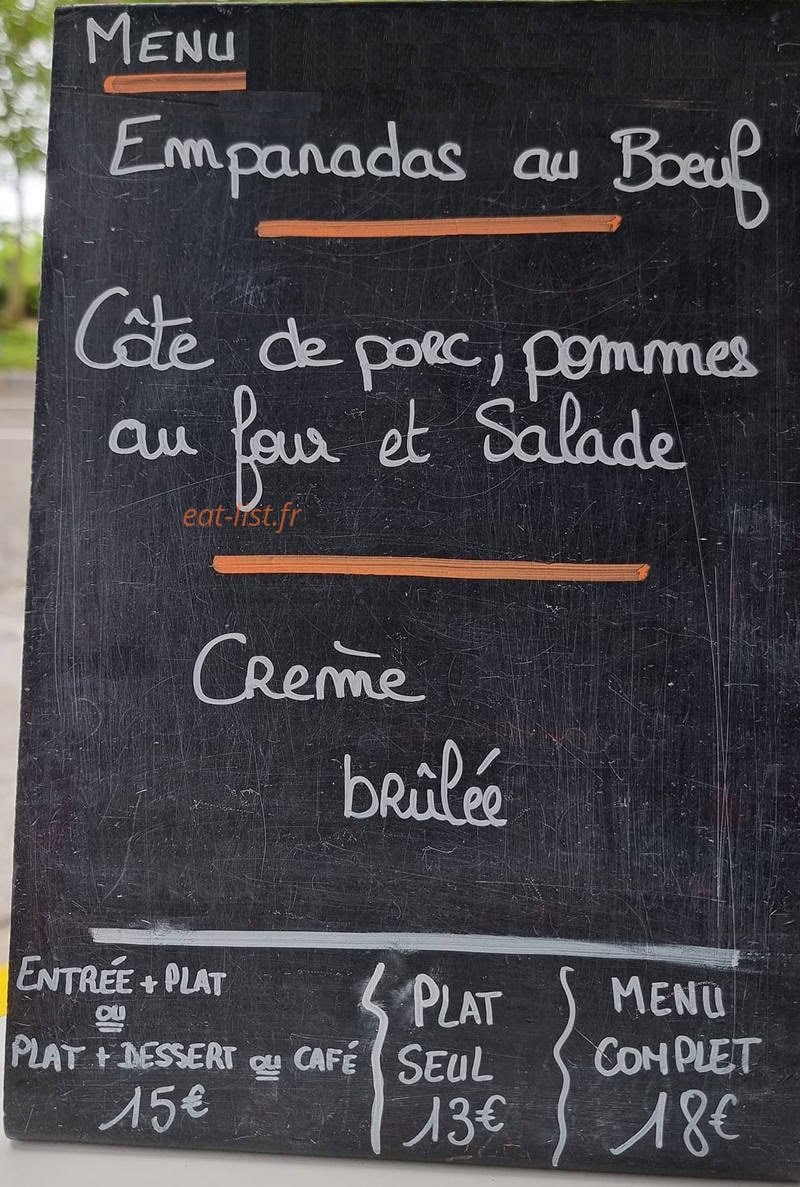 MENU
Empanadas au Boeuf
Côte de porc, pommes
au four et Salade
eat-list.fr
Crème
brûlée
ENTRÉE + PLAT
ou
PLAT + DESSERT ou CAFÉ
15€
PLAT
SEUL
13€
MENU
COMPLET
18€